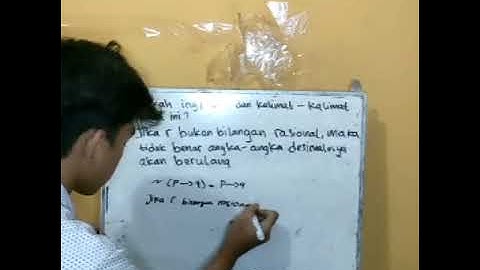 dan kalimat - kalimat
ini?
Jika r bukan bilangan rasional, maka
tidak benar angka-angka desimalnya
akan berulang
~ (P→q) = P→q
Jika r bilangan rasional